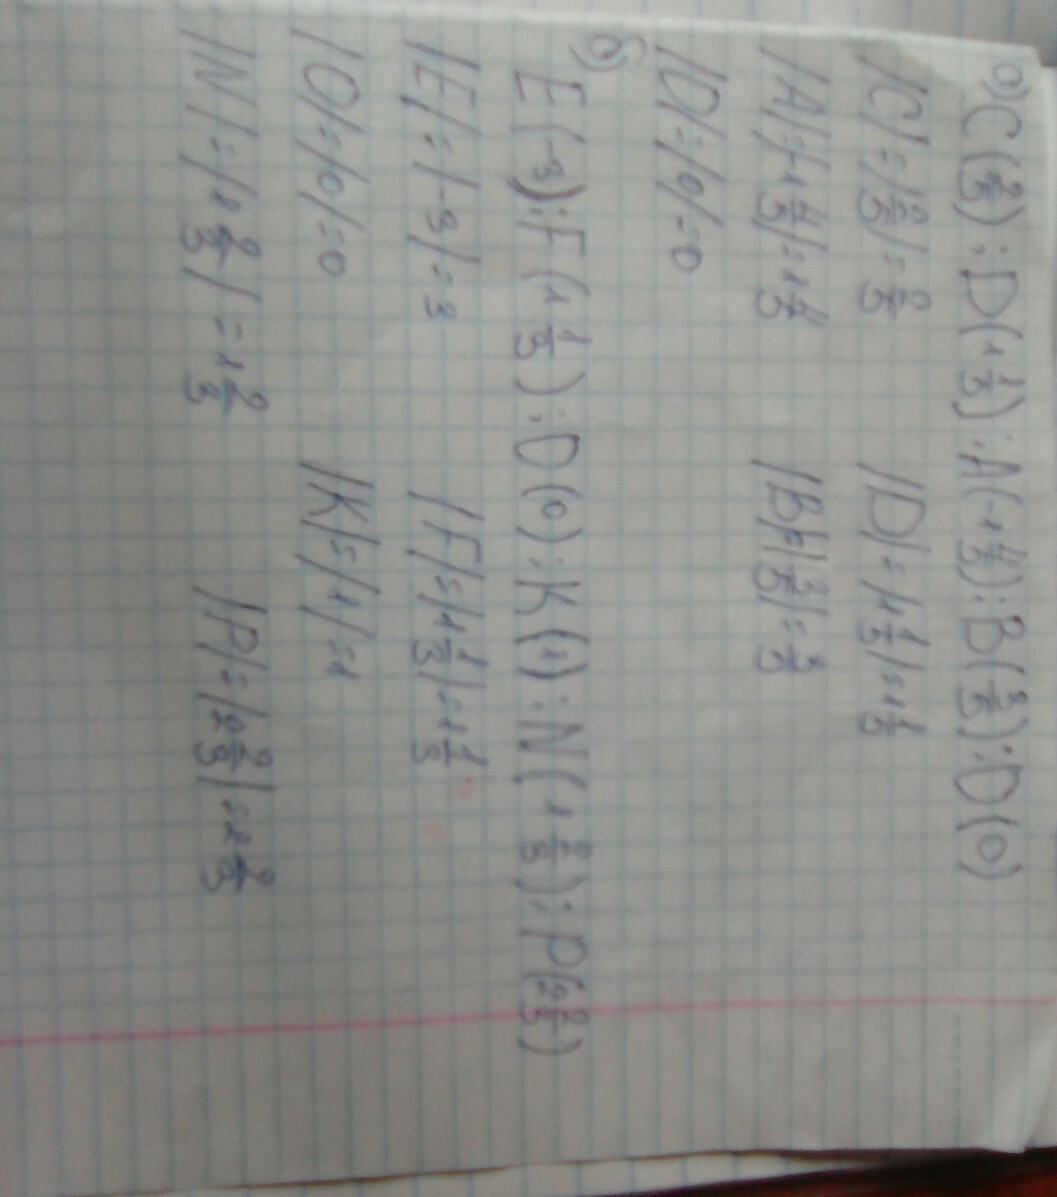 а) C(2/5); D(1 1/5); A(-1 4/5); B(3/5); O(0)
|C|=|2/5|=2/5 |D|=|1 1/5|=1 1/5
|A|=|-1 4/5|=1 4/5 |B|=|3/5|=3/5
|O|=|0|=0
б)
E(-3); F(1 1/3); O(0); K(1); N(1 2/3); P(2 2/3)
|E|=|-3|=3 |F|=|1 1/3|=1 1/3
|O|=|0|=0 |K|=|1|=1
|N|=|1 2/3|=1 2/3 |P|=|2 2/3|=2 2/3